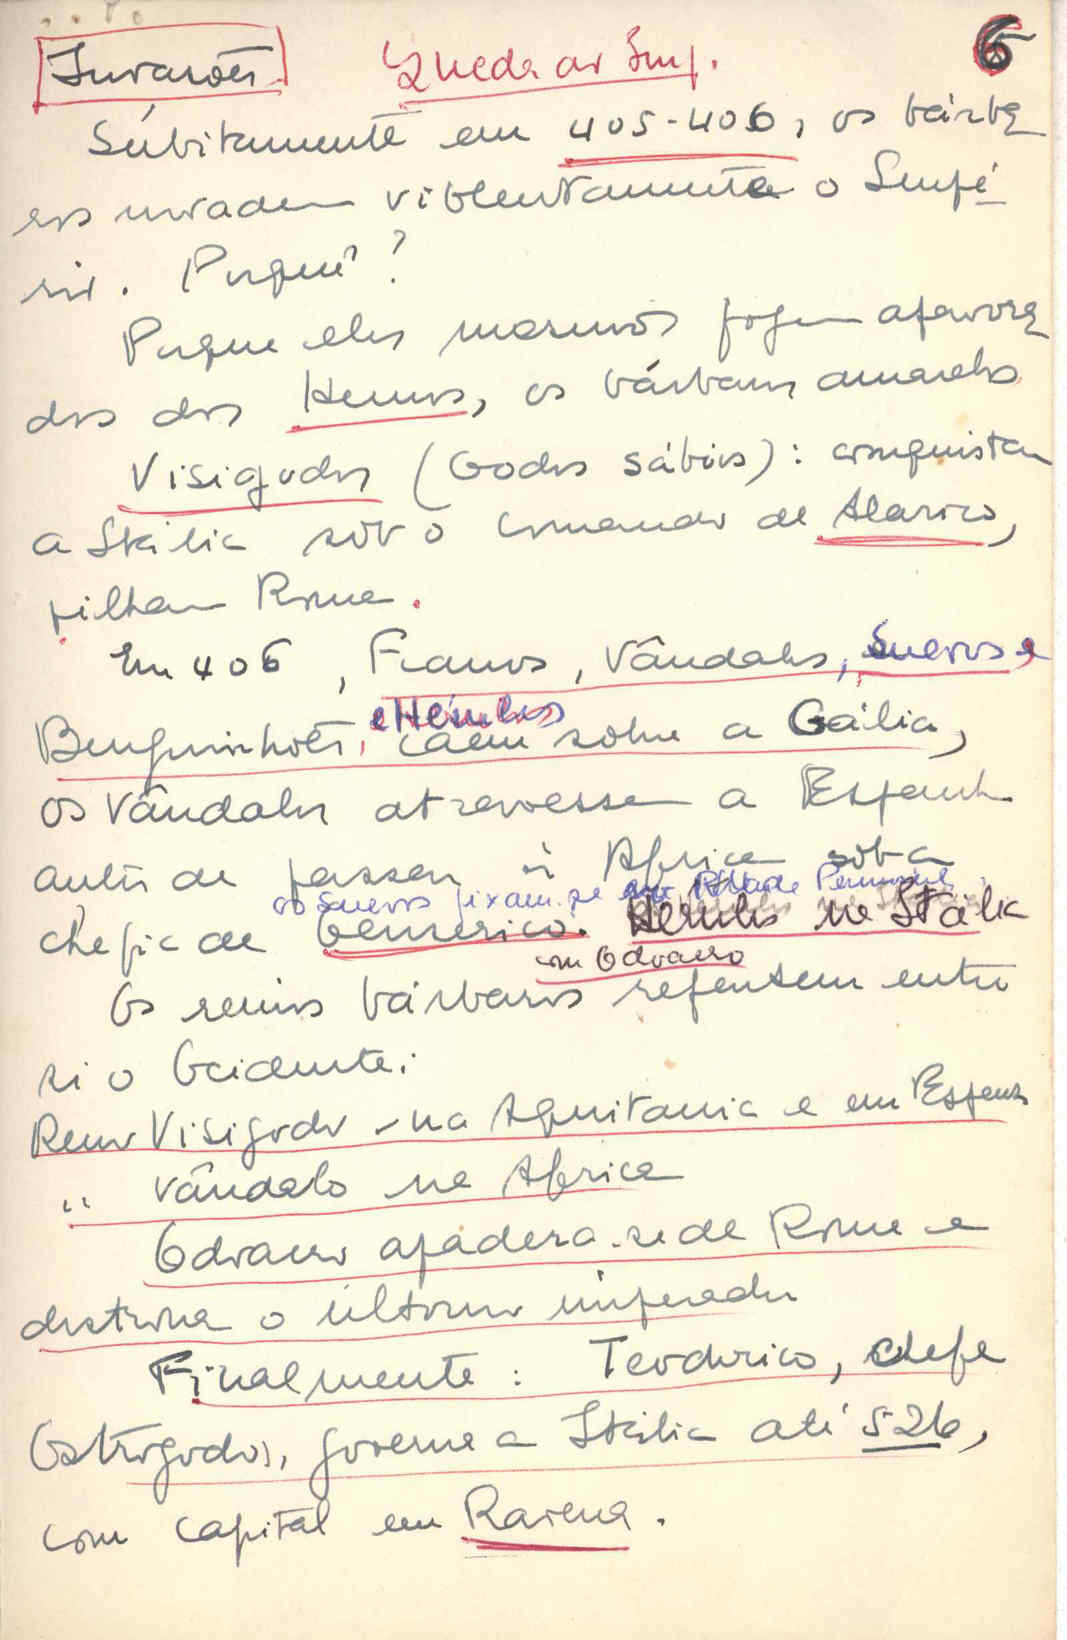 Invasões Queda do Imp. 6
Súbitamente em 405-406, os bárba
ros invadem violentamente o Impé
rio. Porquê?
Porque eles mesmos fogem apavora
dos dos Hunos, os bárbaros amarelos
Visigodos (Godos sábios): conquistam
a Itália sob o comando de Alarico,
pilham Roma.
Em 406, Francos, Vândalos, Suevos e
e Hérulos
Burguinhões, caem sobre a Gália,
os Vândalos atravessam a Espanha
antes de passar à Africa sob a
os Suevos fixam-se Penínsul
chefia de Genserico. Hérulos na Itália
com Odoacro
Os reinos bárbaros repartem entre
si o Ocidente:
Reino Visigodo - na Aquitania e em Espanha
" Vândalo na Africa
Odoacro apodera-se de Roma e
destrona o último imperador
Finalmente: Teodorico, chefe
Ostrogodos, governa a Itália até 526,
com capital em Ravena.